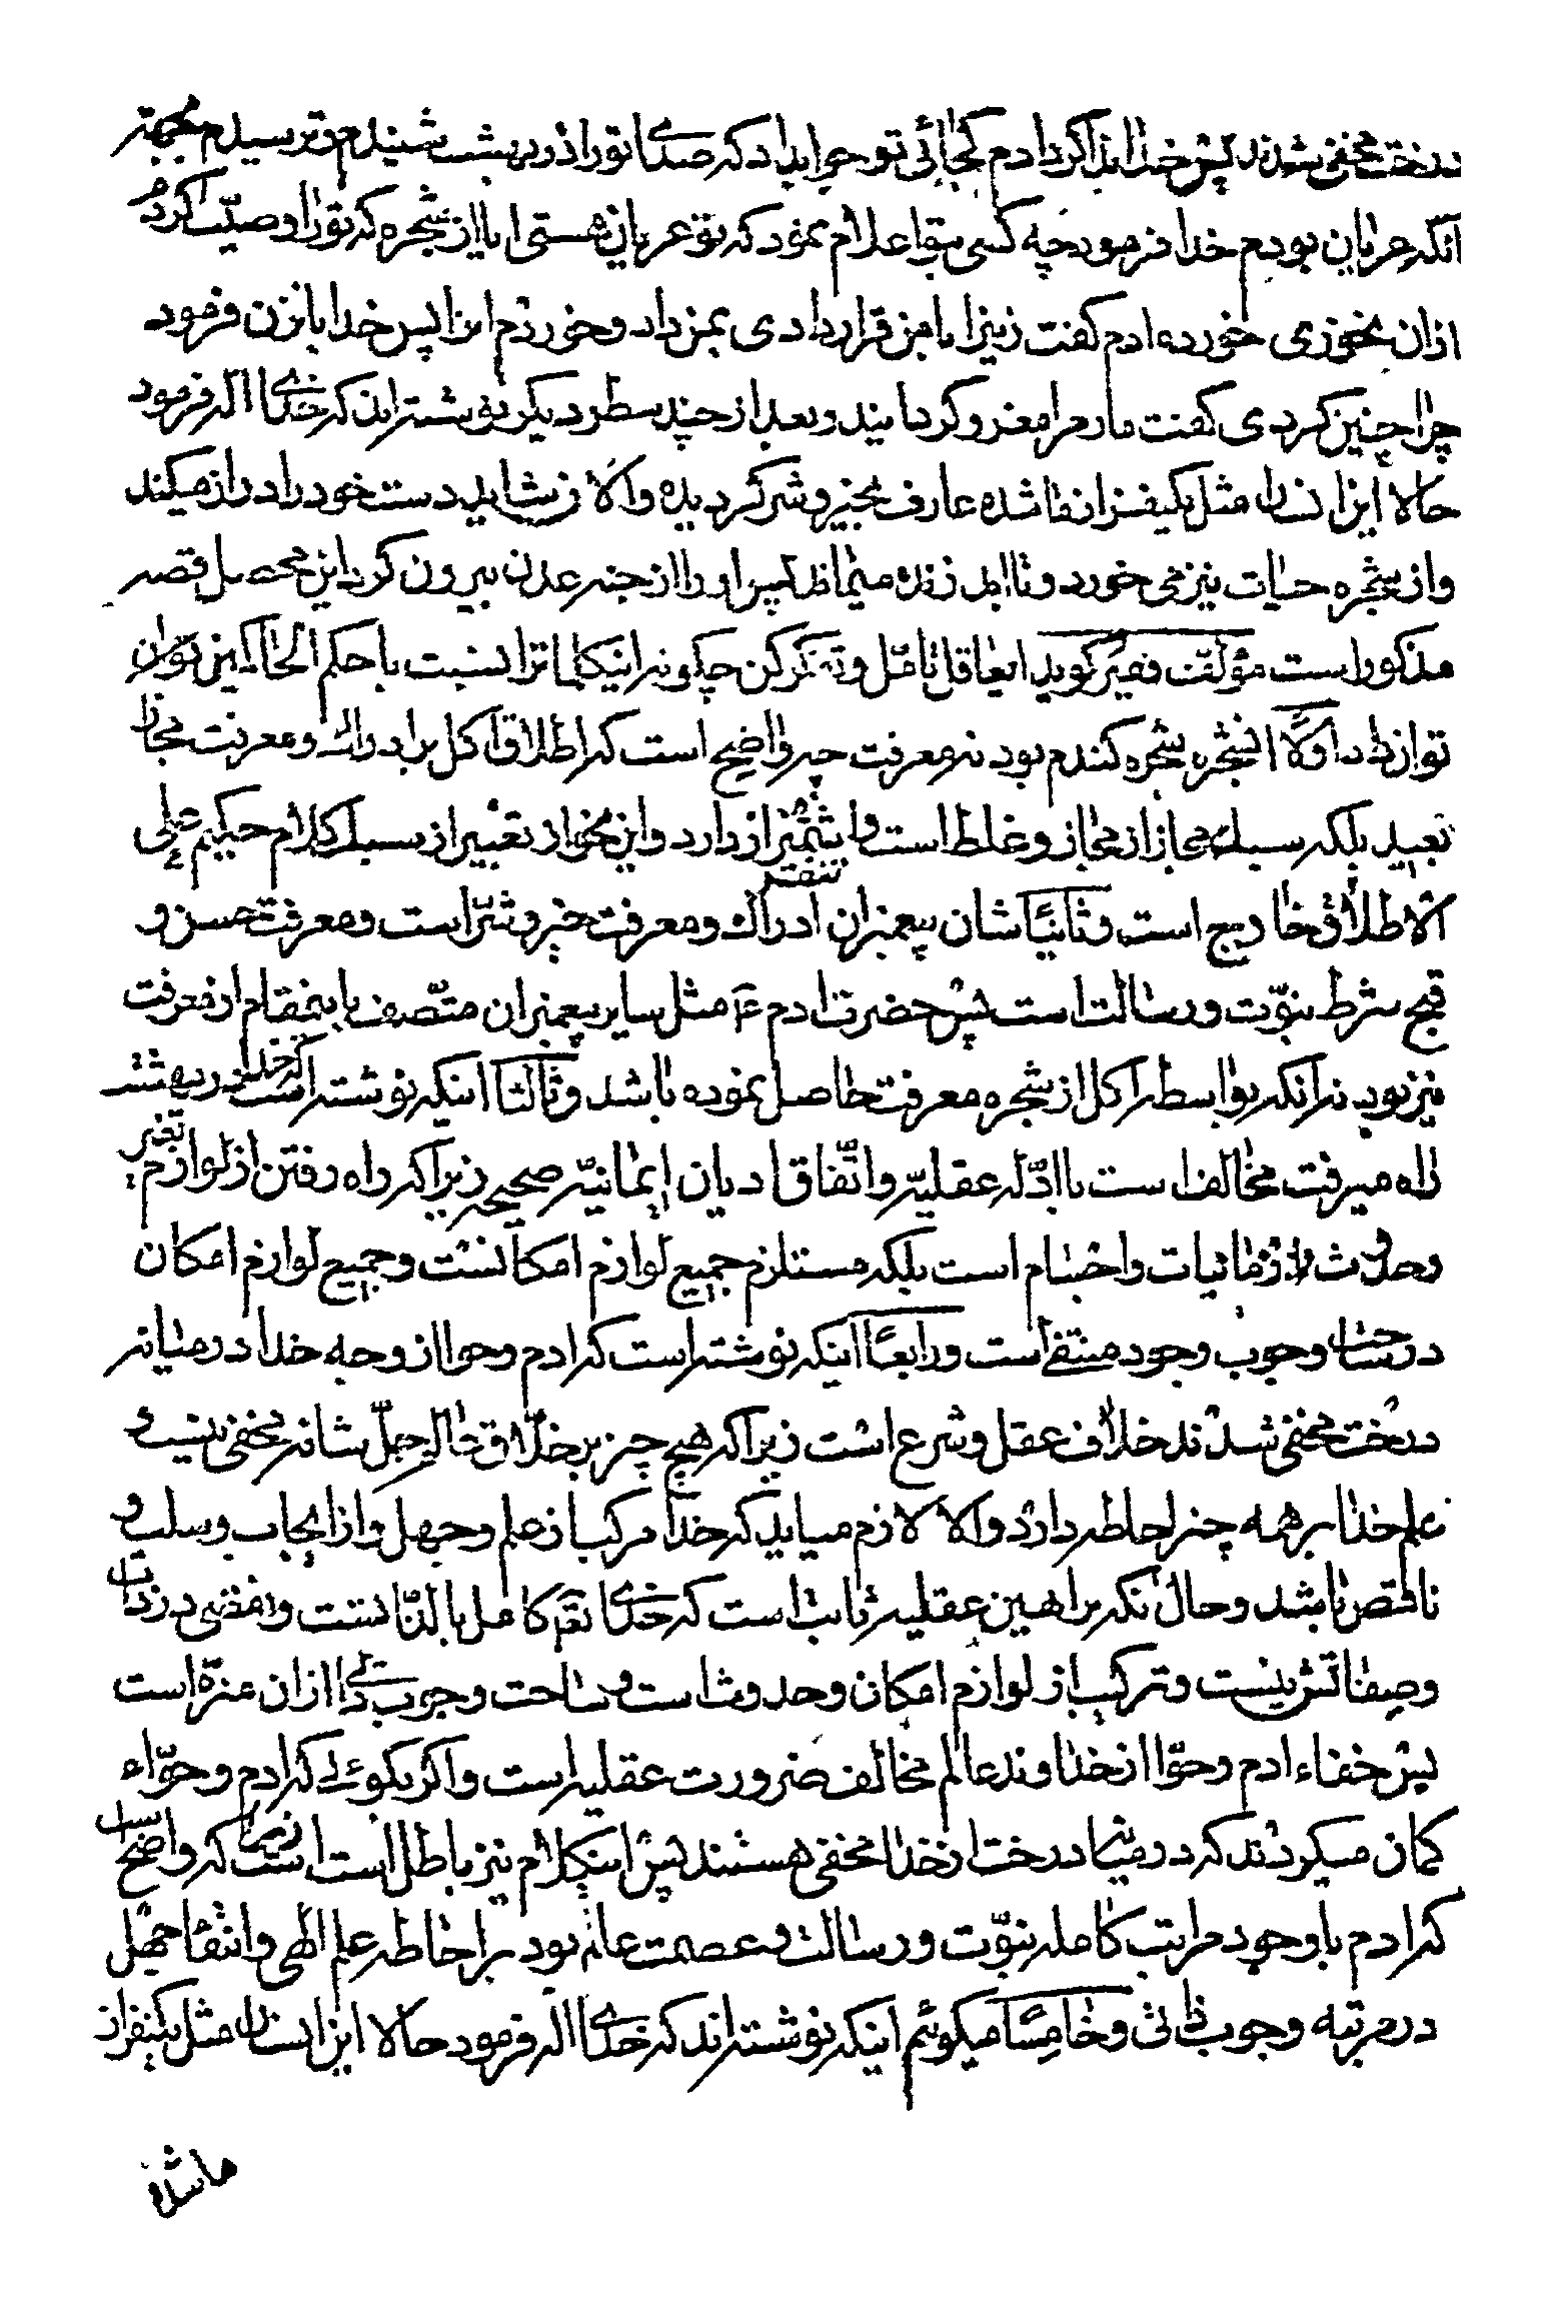 درخت مخفی شدند پس خدا ندا کرد ادم کجائی تو جواب داد که صدای تو را در بهشت شنیدم و ترسیدم بجهة
انکه عریان بودم خدا فرمود چه کسی بتو اعلام نمود که تو عریان هستی ایا از شجره که تو را وصیّت کردم
ازان نخوری خورده ادم کفت زنیرا با من قرار دادی بمن داد و خوردم انرا پس خدا بانزن فرمود
چرا چنین کردی کفت مار مرا مغرور کردانید و بعد از چند سطر دیکر نوشته‌اند که خدای اله فرمود
حالا این انسان مثل یکیفر از ما شده عارف بخیر و شر کردیده والان شاید دست خود را دراز میکند
و از شجره حیات نیز می خورد و تا ابد زنده میماند پس او را از جنه عدن بیرون کرد این محصل قصه
مذکور است مؤلف فقیر کوید ایعاقل تامّل و تفکر کن چکونه اینکلماترا نسبت باحکم الحاکمین توان
تواند داد اوّلا انشجره شجره کندم بود نه معرفت چه واضح است که اطلاق اکل بر ادراک و معرفت مجاز
بعید بلکه سبک مجاز از مجاز و غلط است و اشمئزاز دارد و این نحو از تعبیر از سبک کلام حکیم علی
تنفر
الاطلاق خارج است و ثانیًا شان پیغمبران ادراک و معرفت خیر و شرّ است و معرفت حسن و
قبح شرط نبوّت و رسالت است پس حضرت ادم ع مثل سایر پیغمبران متّصف باینمقام از معرفت
نیز بود نه انکه بواسطه اکل از شجره معرفت حاصل نموده باشد و ثالثا اینکه نوشته است که خدا در بهشت
راه میرفت مخالف است با ادلّه عقلیّه و اتّفاق ادیان ایمانیّه صحیحه زیرا که راه رفتن از لوازم تغیر
و حدوث و از مادیات و اجسام است بلکه مستلزم جمیع لوازم امکانست و جمیع لوازم امکان
در ساحت وجوب وجود منتفی است و رابعًا اینکه نوشته است که ادم و حوا از وجه خدا در میانه
درخت مخفی شدند خلاف عقل و شرع است زیرا که هیچ چیز بر خلّاق خالق جلّ شانه مخفی نیست و
علم خدا بر همه چیز احاطه دارد و الا لازم میاید که خدا مرکب از علم و جهل و از ایجاب و سلب و
ناقص باشد و حال انکه براهین عقلیه ثابت است که خدای تع کامل بالذّاتست و نقصی در ذات
و صفاتش نیست و ترکیب از لوازم امکان و حدوث است و ساحت وجوب ذاتی از ان منزّه است
پس خفاء ادم و حوّا از خداوند عالم مخالف ضرورت عقلیه است و اکر بکوئی که ادم و حوّاء
کمان میکردند که در میان درخت از خدا مخفی هستند پس اینکلام نیز باطل است زیرا که واضح است
که ادم با وجود مراتب کامله نبوّت و رسالت و عصمت عالم بود بر احاطه علم الهی و انتفا جهل
در مرتبه وجوب ذاتی و خامسًا میکوئیم اینکه نوشته‌اند که خدای اله فرمود حالا این انسان مثل یکنفر از
ما شده